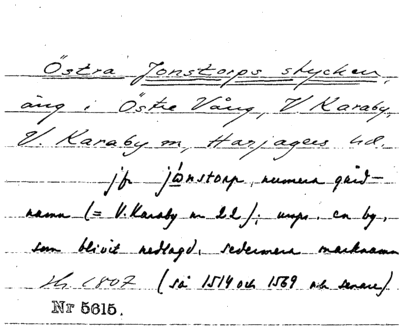 Östra Jonstorps stycken,
äng i Östre Vång, V Karaby,
V. Karaby sn, Harjagers hd.
jfr jonstorp, numera gård-
namn (= V. Karaby sn); urspr. en by,
som blivit nedlagd, sedermera marknamn
(så 1514 och 1569 och senare)
Nr 5615.